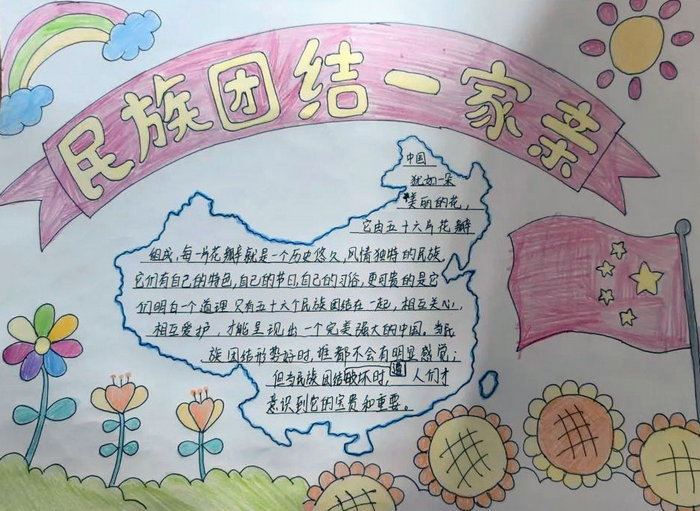 民族团结一家亲
中国
犹如一朵
美丽的花，
它由五十六片花瓣
组成，每一片花瓣就是一个历史悠久，风情独特的民族，
它们有自己的特色，自己的节日，自己的习俗，更可贵的是它
们明白一个道理，只有五十六个民族团结在一起，相互关心，
相互爱护，才能呈现出一个完美强大的中国。当民
族团结形势好时，谁都不会有明显感觉；
但当民族团结遭破坏时，人们才
意识到它的宝贵和重要。